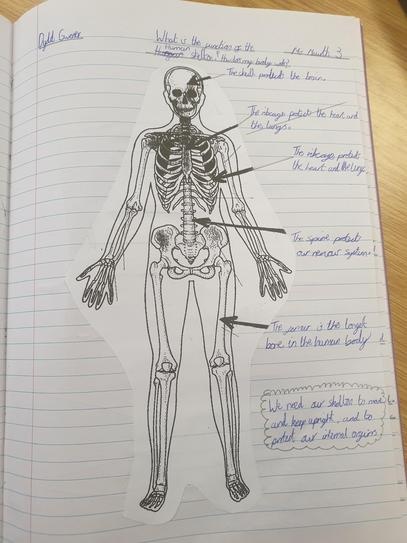 What is the function of the
Human skeleton?
The skull protect the brain.
The ribcage protect the heart and
the lungs.
The ribcage protect
the heart and the lungs
The spine protect
our nervous system.
The femur is the longest
bone in the human body
We need our skeleton to move
and keep upright, and to
protect our internal organs